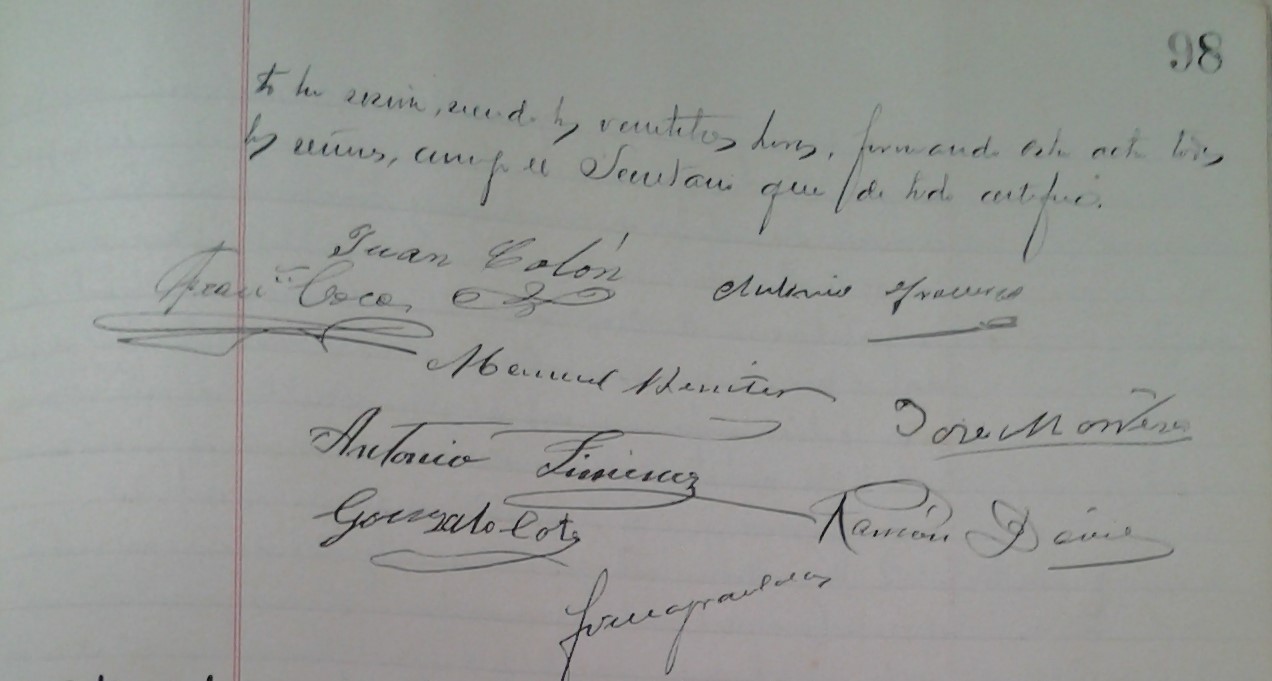 98
to la sesión, siendo las veintitrés horas, firmando esta acta todos
los reunidos, conmigo el Secretario que de todo certifico.
Juan Colón
Franco Coca Antonio
Manuel Benitez
José Montero
Antonio Jimenez
Gonzalo Cota Ramón David